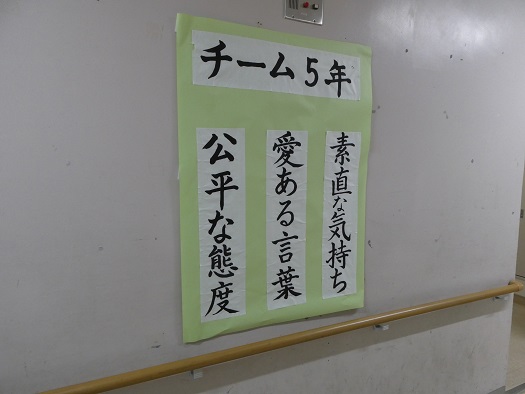 チーム5年
素直な気持ち
愛ある言葉
公平な態度